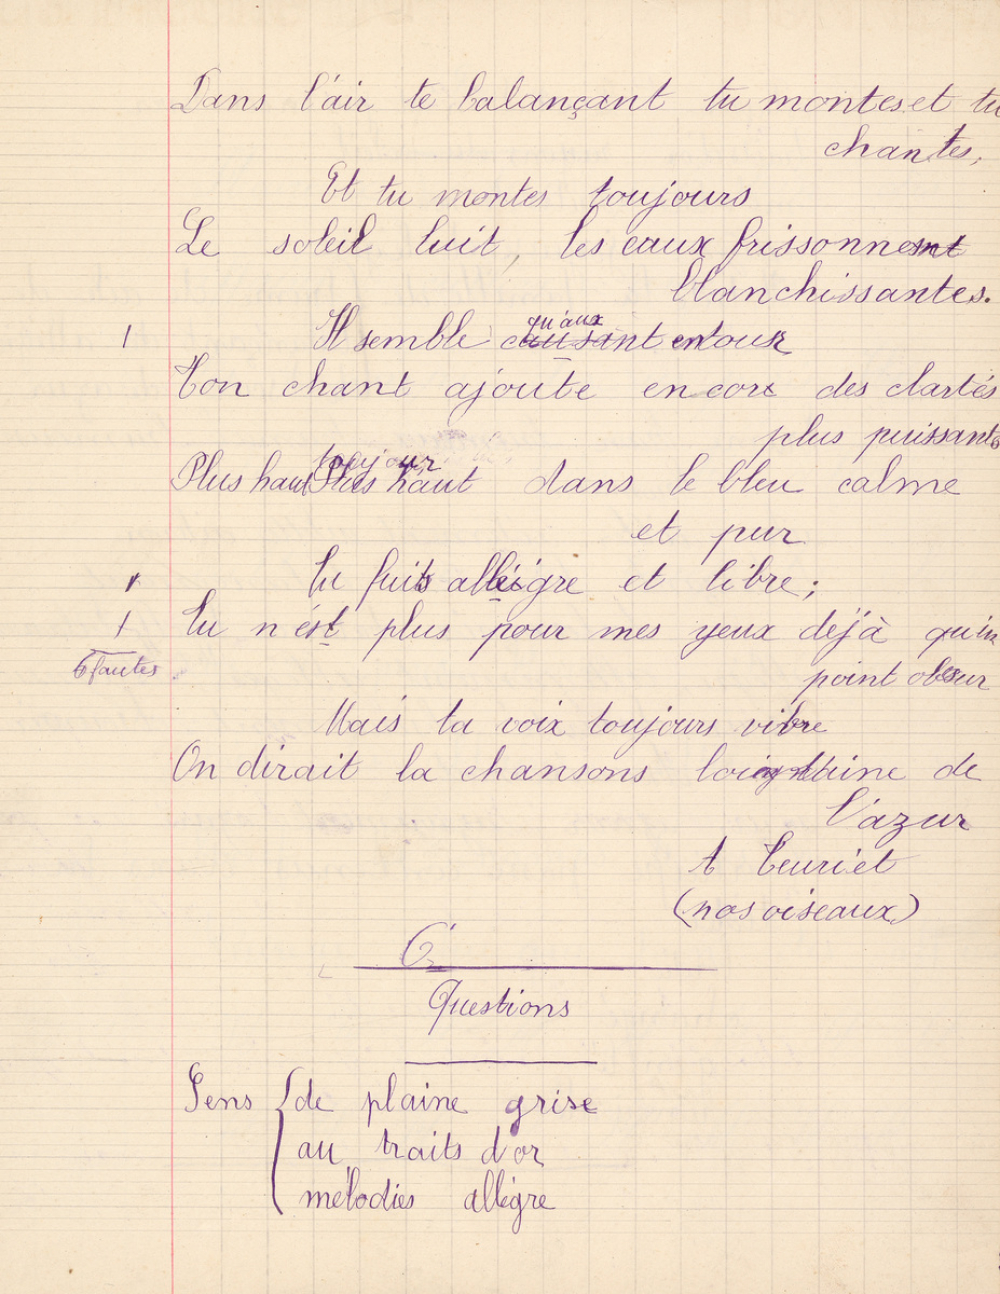 Dans l'air te balançant tu montes et tu
chantes,
Et tu montes toujours
Le soleil luit, les eaux frissonnent
blanchissantes.
1 Il semble qu'aux entour
Ton chant ajoute encore des clartés
plus puissants
toujour
Plus haut Plus haut dans le bleu calme
et pur
1 Tu fuis allégre et libre;
1 Tu n'est plus pour mes yeux déjà qu'un
6 fautes point obsur
Mais ta voix toujours vibre
On dirait la chansons lointaine de
l'azur
A Teuriet
(nos oiseaux)
6
Questions
Sens { de plaine grise
au traits d'or
mélodies allégre